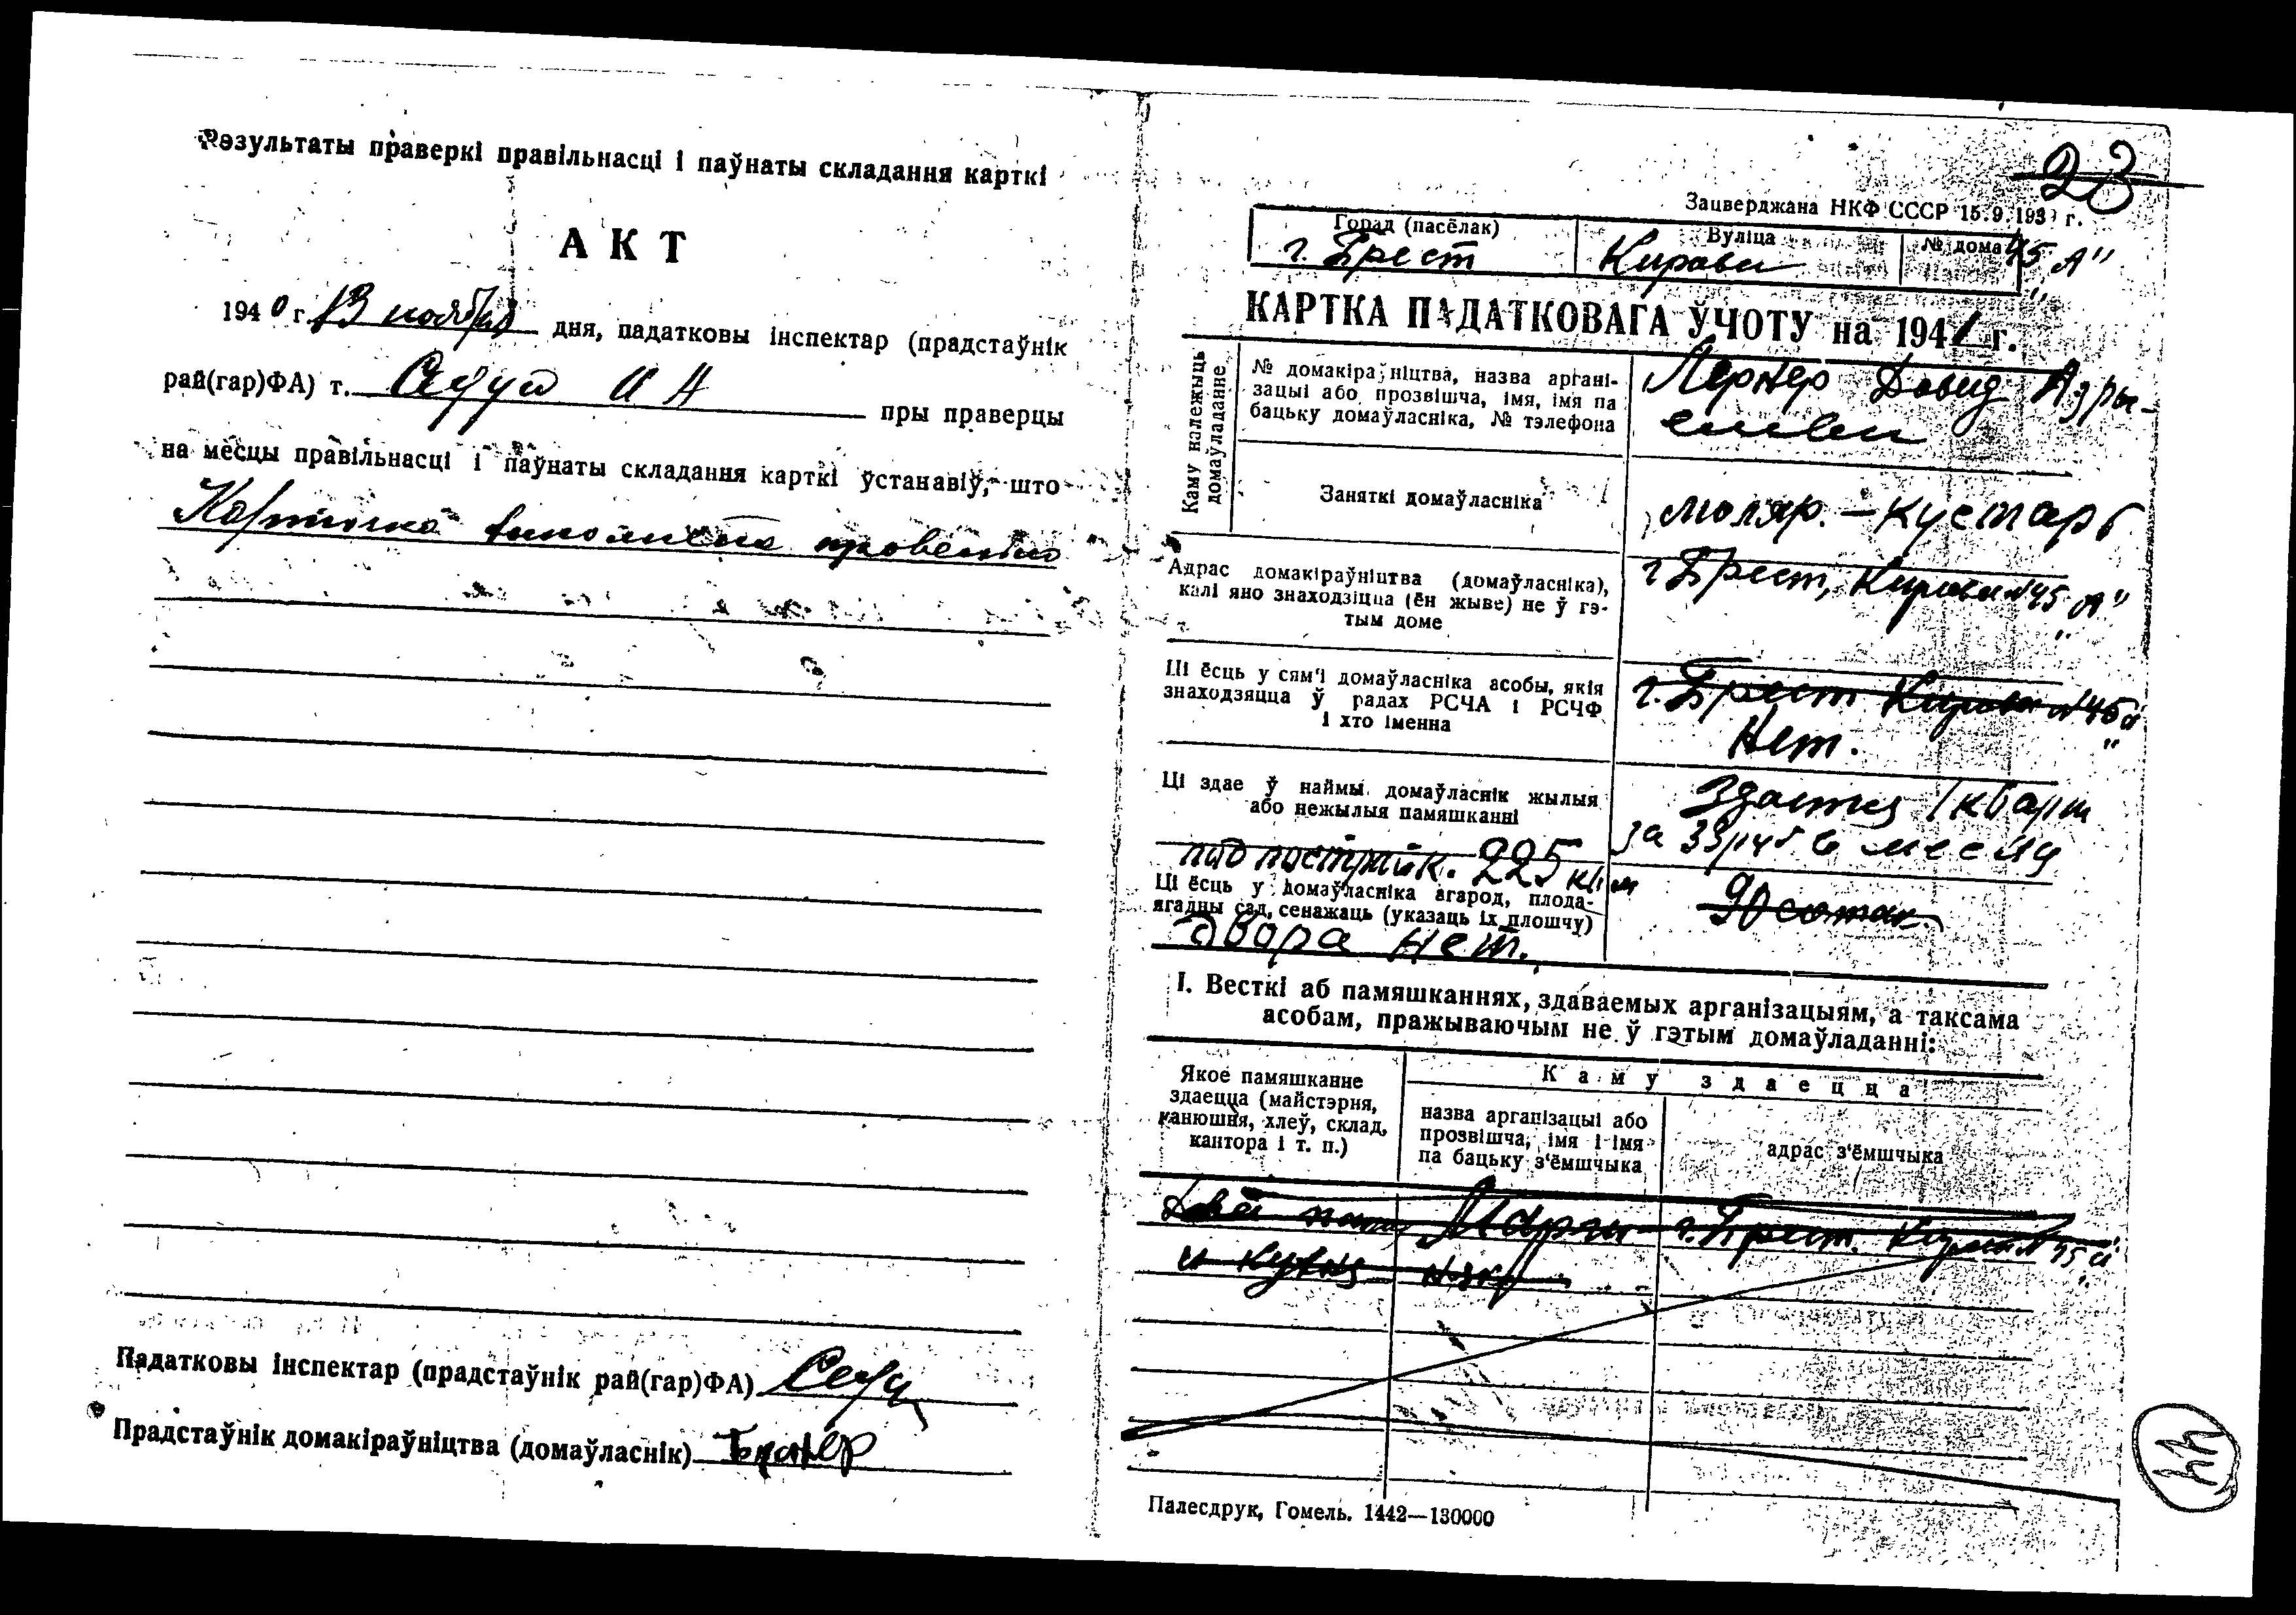 Рэзультаты праверкі правільнасці і паўнаты складання карткі
АКТ
1940 г. 13 ноября дня, падатковы інспектар (прадстаўнік
рай(гар)ФА) т. пры праверцы
на месцы правільнасці і паўнаты складання карткі ўстанавіў, што
Карточка
Падатковы інспектар (прадстаўнік рай(гар)ФА)
Прадстаўнік домакіраўніцтва (домаўласнік)
23
Зацверджана НКФ СССР 15.9.193 г.
Горад (пасёлак) Вуліца № дома
г. Брест Кирова 45 „А"
КАРТКА ПАДАТКОВАГА ЎЧОТУ на 1941 г.
Каму належыць домаўладанне
№ домакіраўніцтва, назва аргані-
зацыі або прозвішча, імя, імя па
бацьку домаўласніка, № тэлефона
Лернер Довид Азри-
елиевич
Заняткі домаўласніка
маляр. - кустарь
Адрас домакіраўніцтва (домаўласніка),
калі яно знаходзіцца (ён жыве) не ў гэ-
тым доме
г Брест, Кирова №45 „А"
Ці ёсць у сям'і домаўласніка асобы, якія
знаходзяцца ў радах РСЧА і РСЧФ
і хто іменна
г. Брест Кирова №45 а
Нет.
Ці здае ў наймы домаўласнік жылыя
або нежылыя памяшканні
Здается 1 кварт
за 33 руб в месяц
под постройк. 225 кв. м
Ці ёсць у домаўласніка агарод, плода-
ягадны сад, сенажаць (указаць іх плошчу)
90 соток
Двора нет.
I. Весткі аб памяшканнях, здаваемых арганізацыям, а таксама
асобам, пражываючым не ў гэтым домаўладанні:
Якое памяшканне
здаецца (майстэрня,
канюшня, хлеў, склад,
кантора і т. п.)
Каму здаецца
назва арганізацыі або
прозвішча, імя і імя
па бацьку з'ёмшчыка
адрас з'ёмшчыка
г. Брест. Кирова №45 а
и кухня
Палесдрук, Гомель. 1442—130000